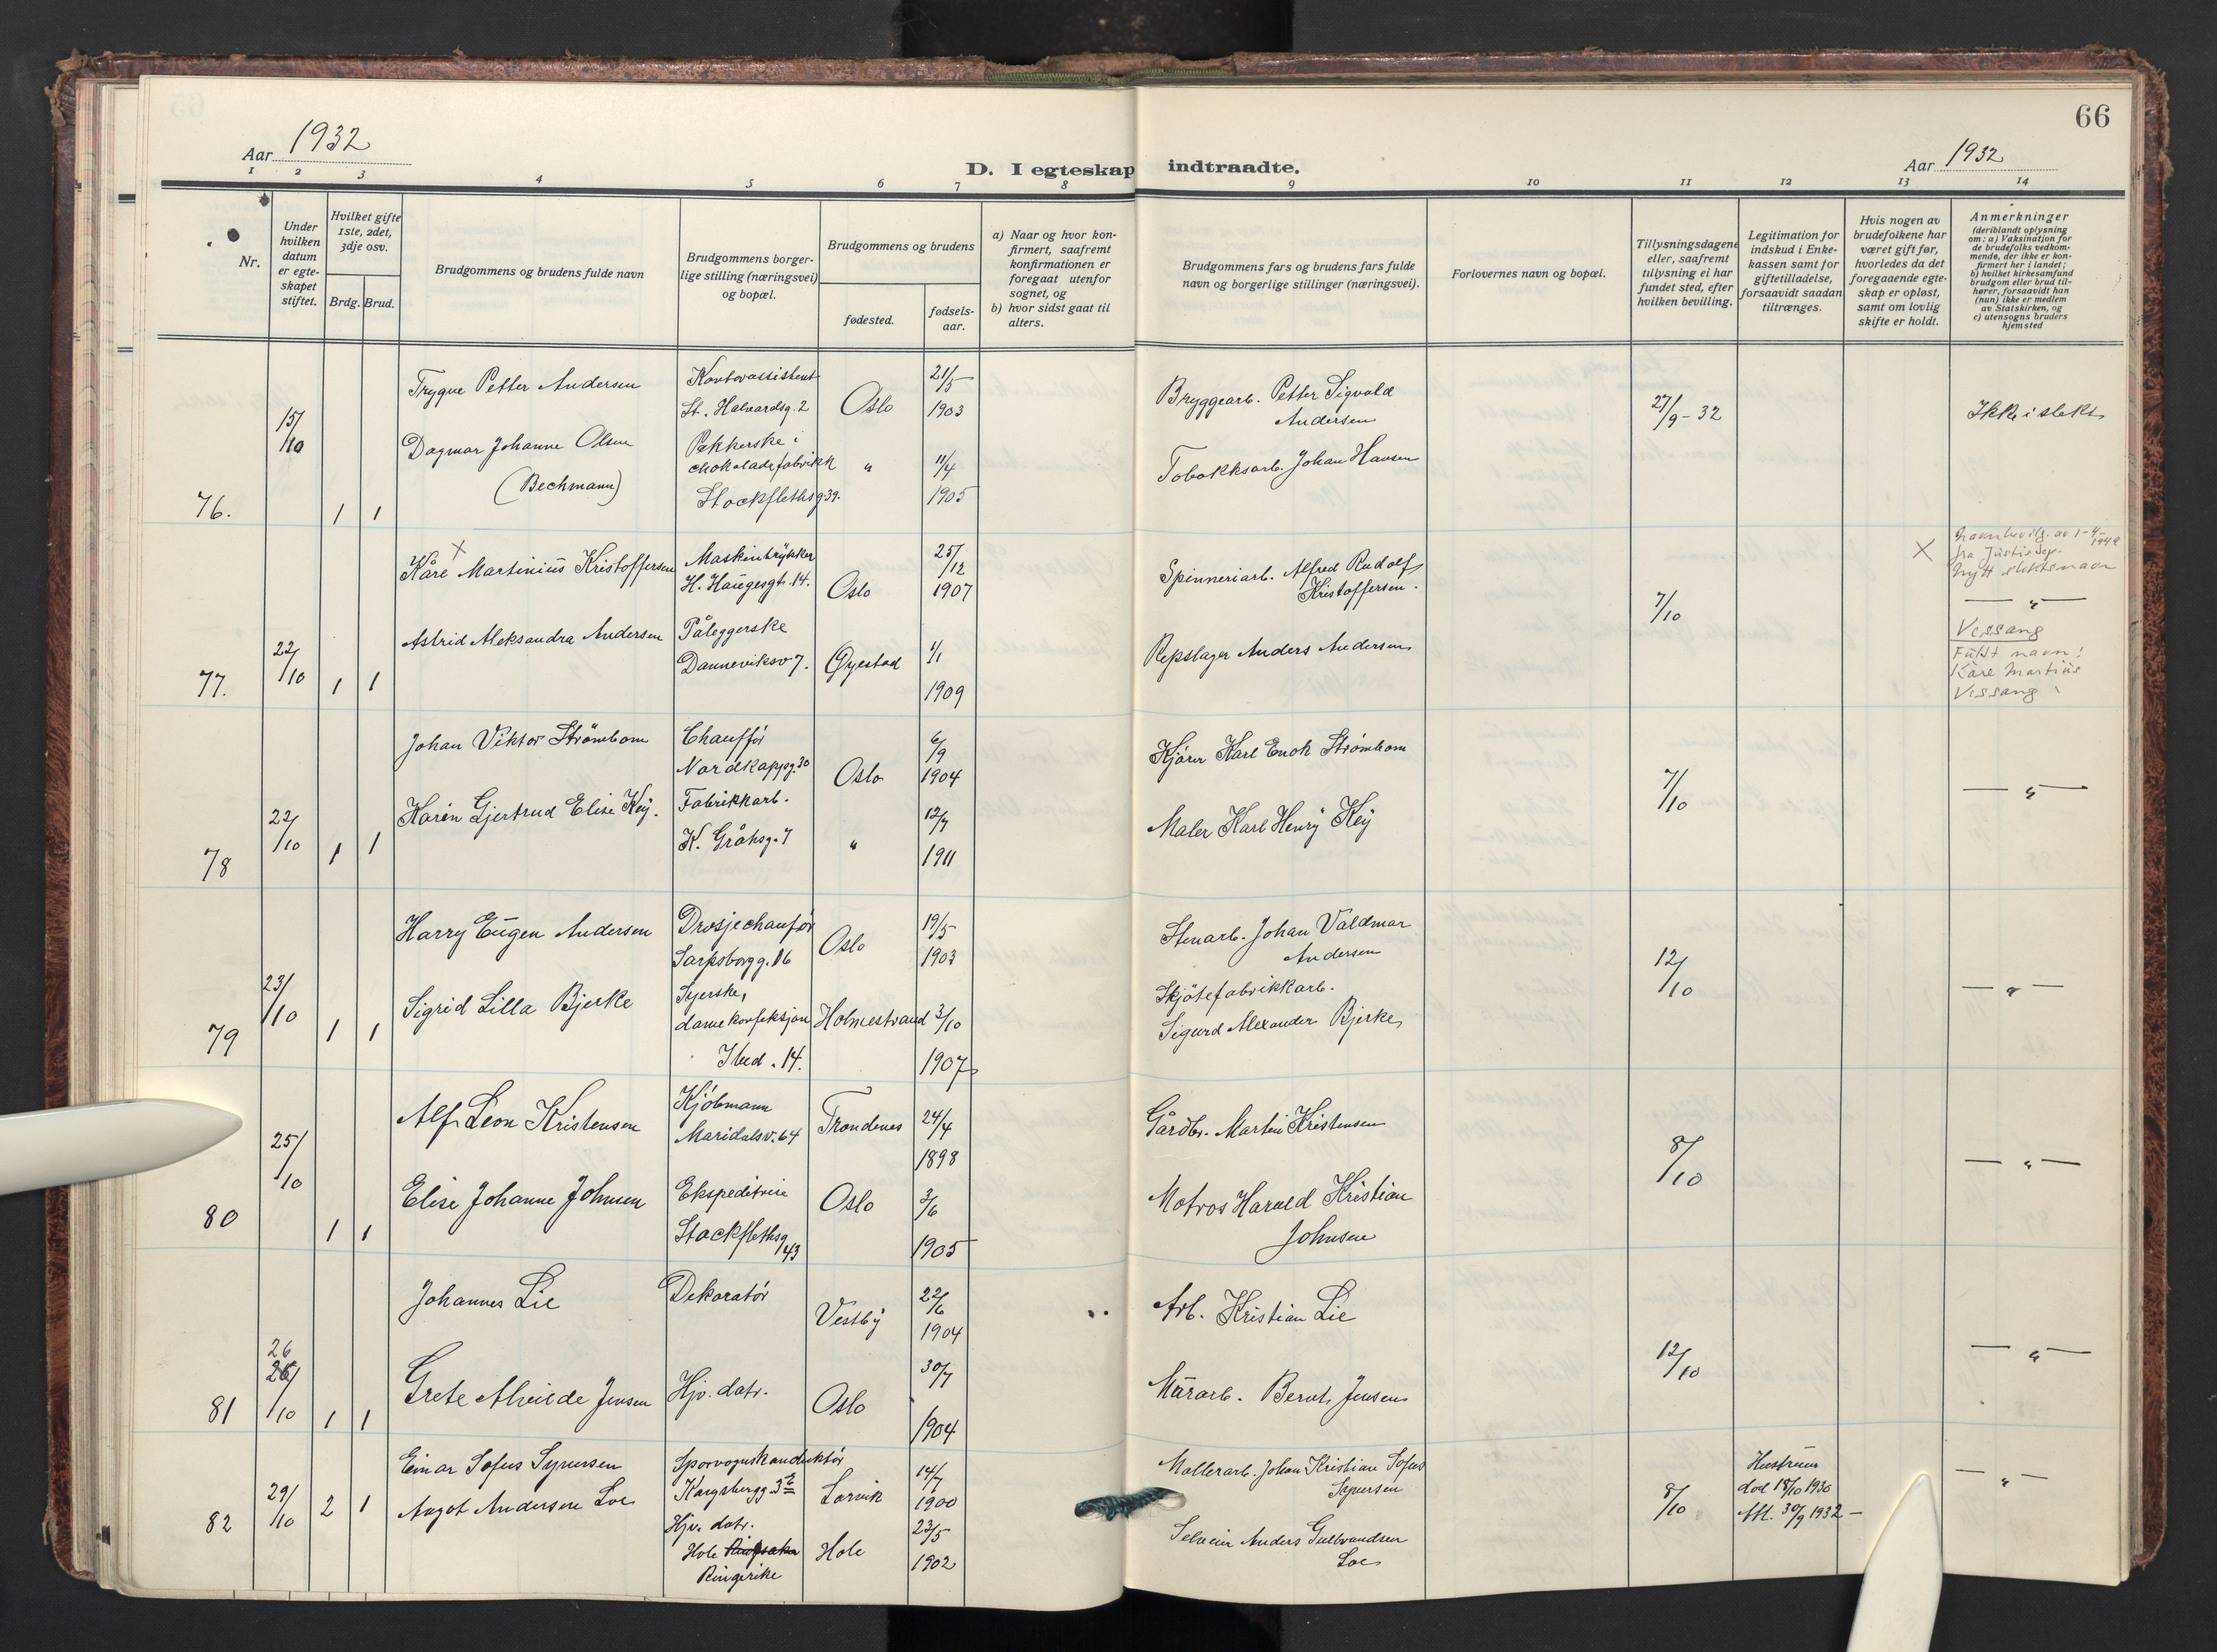 66
Aar 1932
Aar 1932
D. I egteskap indtraadte.
1 2 3 4 5 6 7 8 9 10 11 12 13 14
Nr.
Under hvilken datum er egte-skapet stiftet.
Hvilket gifte 1ste, 2det, 3dje osv.
Brdg. Brud.
Brudgommens og brudens fulde navn
Brudgommens borger-
lige stilling (næringsvei)
og bopæl.
Brudgommens og brudens
fødested.
fødsels-
aar.
a) Naar og hvor kon-
firmert, saafremt
konfirmationen er
foregaat utenfor
sognet, og
b) hvor sidst gaat til
alters.
Brudgommens fars og brudens fars fulde
navn og borgerlige stillinger (næringsvei).
Forlovernes navn og bopæl.
Tillysningsdagene
eller, saafremt
tillysning ei har
fundet sted, efter
hvilken bevilling.
Legitimation for
indskud i Enke-
kassen samt for
giftetilladelse,
forsaavidt saadan
tiltrænges.
Hvis nogen av
brudefolkene har
været gift før,
hvorledes da det
foregaaende egte-
skap er opløst,
samt om lovlig
skifte er holdt.
Anmerkninger
(deriblandt oplysning
om: a) Vaksination for
de brudefolks vedkom-
mende, der ikke er kon-
firmert her i landet;
b) hvilket kirkesamfund
brudgom eller brud til-
hører, forsaavidt han
(hun) ikke er medlem
av Statskirken, og
c) utensogns bruders
hjemsted
76. 15/10 1 1
Trygve Petter Andersen
Kontorassistent
St. Halvardsg. 2
Oslo
21/5
1903
Bryggearb. Petter Sigvald
Andersen
27/9-32
Ikke i slekt
Dagmar Johanne Olsen
(Bechmann)
Pakkerske i
chokoladefabrikk
Stockflethsg. 39.
"
11/4
1905
Tobakksarb. Johan Hansen
77. 22/10 1 1
X
Kåre Martinius Kristoffersen
Maskintrykker
H. Haugesgt. 14.
Oslo
25/12
1907
Spinneriarb. Alfred Rudolf
Kristoffersen.
7/10
X
fra Justisdep.
nytt slektsnavn
— " —
Vessang
Fullt navn:
Kåre Martius
Vessang
Astrid Aleksandra Andersen
Påleggerske
Danneviksv 7.
Øyestad
1909
Repslager Anders Andersen
78 22/10 1 1
Johan Viktor Strömbom
Chauffør
Nordkappg. 30
Oslo
6/9
1904
Kjører Karl Enok Strömbom
7/10
— " —
Karin Gjertrud Elise Key.
Fabrikkarb.
K. Gråhsg. 7
"
12/7
1911
Maler Karl Henry Key
79 23/10 1 1
Harry Eugen Andersen
Drosjechaufør
Sarpsborgg. 16
Oslo
19/5
1903
Stenarb. Johan Valdmar
Andersen
12/10
— " —
Sigrid Lilla Bjerke
Syerske,
damekonfeksjon
14.
Holmestrand
3/10
1907
Skjøtefabrikkarb.
Sigurd Alexander Bjerke
80 25/10 1 1
Alf Leon Kristensen
Kjøbmann
Maridalsv. 64
Trondenes
24/4
1898
Gårdbr. Martin Kristensen
8/10
— " —
Elise Johanne Johnsen
Ekspeditrise
Stockflethsg 43
Oslo
3/6
1905
Matros Harald Kristian
Johnsen
81 26 26/10 1 1
Johannes Lie
Dekoratør
Vestby
22/6
1904
Arb. Kristian Lie
12/10
— " —
Grete Alvilde Jensen
Hjv. datr.
Oslo
30/7
1904
Murarb. Bernt Jensen
82 29/10 2 1
Einar Sofus Syversen
Sporvognskonduktør
Larvik
14/7
1900
Møllerarb. Johan Kristian Sofus
Syversen
8/10
Hustruen
død 18/10 1930
Att. 30/9 1932 —
— " —
Aagot Andersen Loe
Hjv. datr.
Hole Ringsaker
Ringerike
Hole
23/5
1902
Selveier Anders Gulbrandsen
Loe